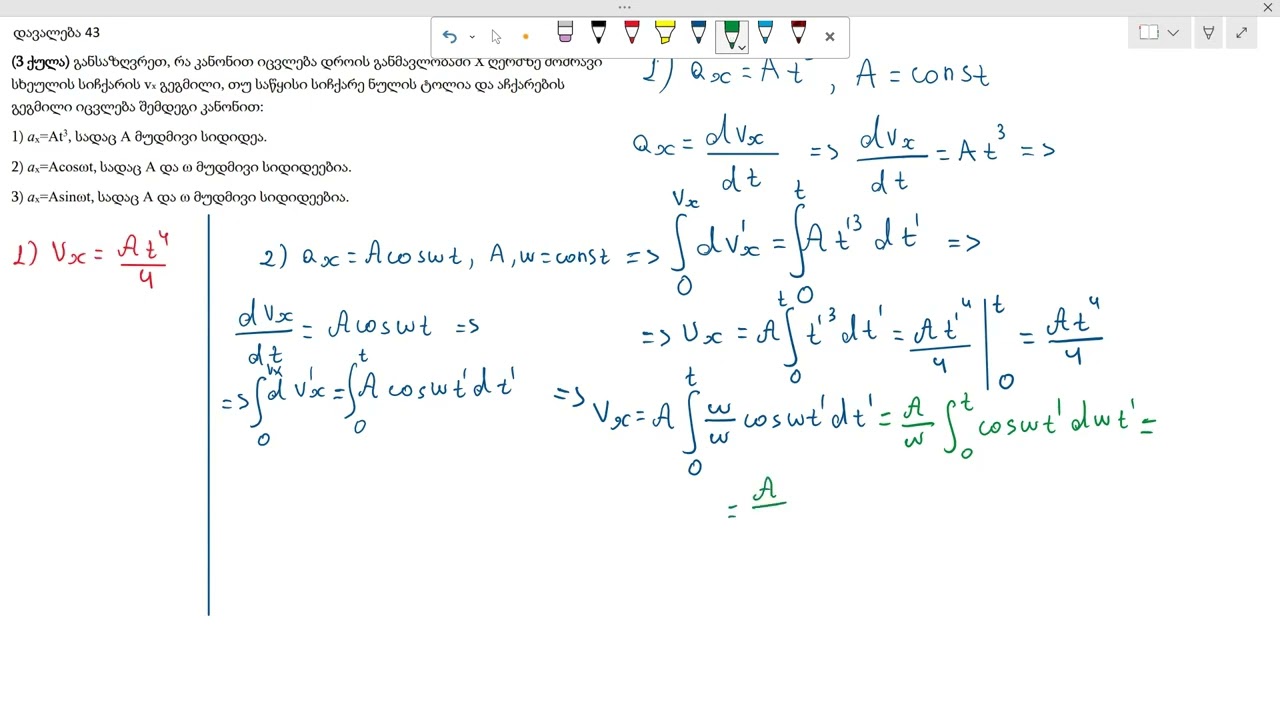 დავალება 43
(3 ქულა) განსაზღვრეთ, რა კანონით იცვლება დროის განმავლობაში X ღერძზე მოძრავი
სხეულის სიჩქარის vₓ გეგმილი, თუ საწყისი სიჩქარე ნულის ტოლია და აჩქარების
გეგმილი იცვლება შემდეგი კანონით:
1) aₓ=At³, სადაც A მუდმივი სიდიდეა.
2) aₓ=Acosωt, სადაც A და ω მუდმივი სიდიდეებია.
3) aₓ=Asinωt, სადაც A და ω მუდმივი სიდიდეებია.
1) aₓ = At³, A = const
aₓ = dvₓ/dt => dvₓ/dt = At³ =>
=> ∫₀^vₓ dv'ₓ = ∫₀^t At'³ dt' =>
=> vₓ = A ∫₀^t t'³ dt' = At'⁴/4 |₀^t = At⁴/4
1) Vₓ = At⁴/4
2) aₓ = Acosωt, A, ω = const
dVₓ/dt = Acosωt =>
=> ∫₀^vₓ dv'ₓ = ∫₀^t A cosωt' dt' =>
Vₓ = A ∫₀^t ω/ω cosωt' dt' = A/ω ∫₀^t cosωt' dωt' =
= A